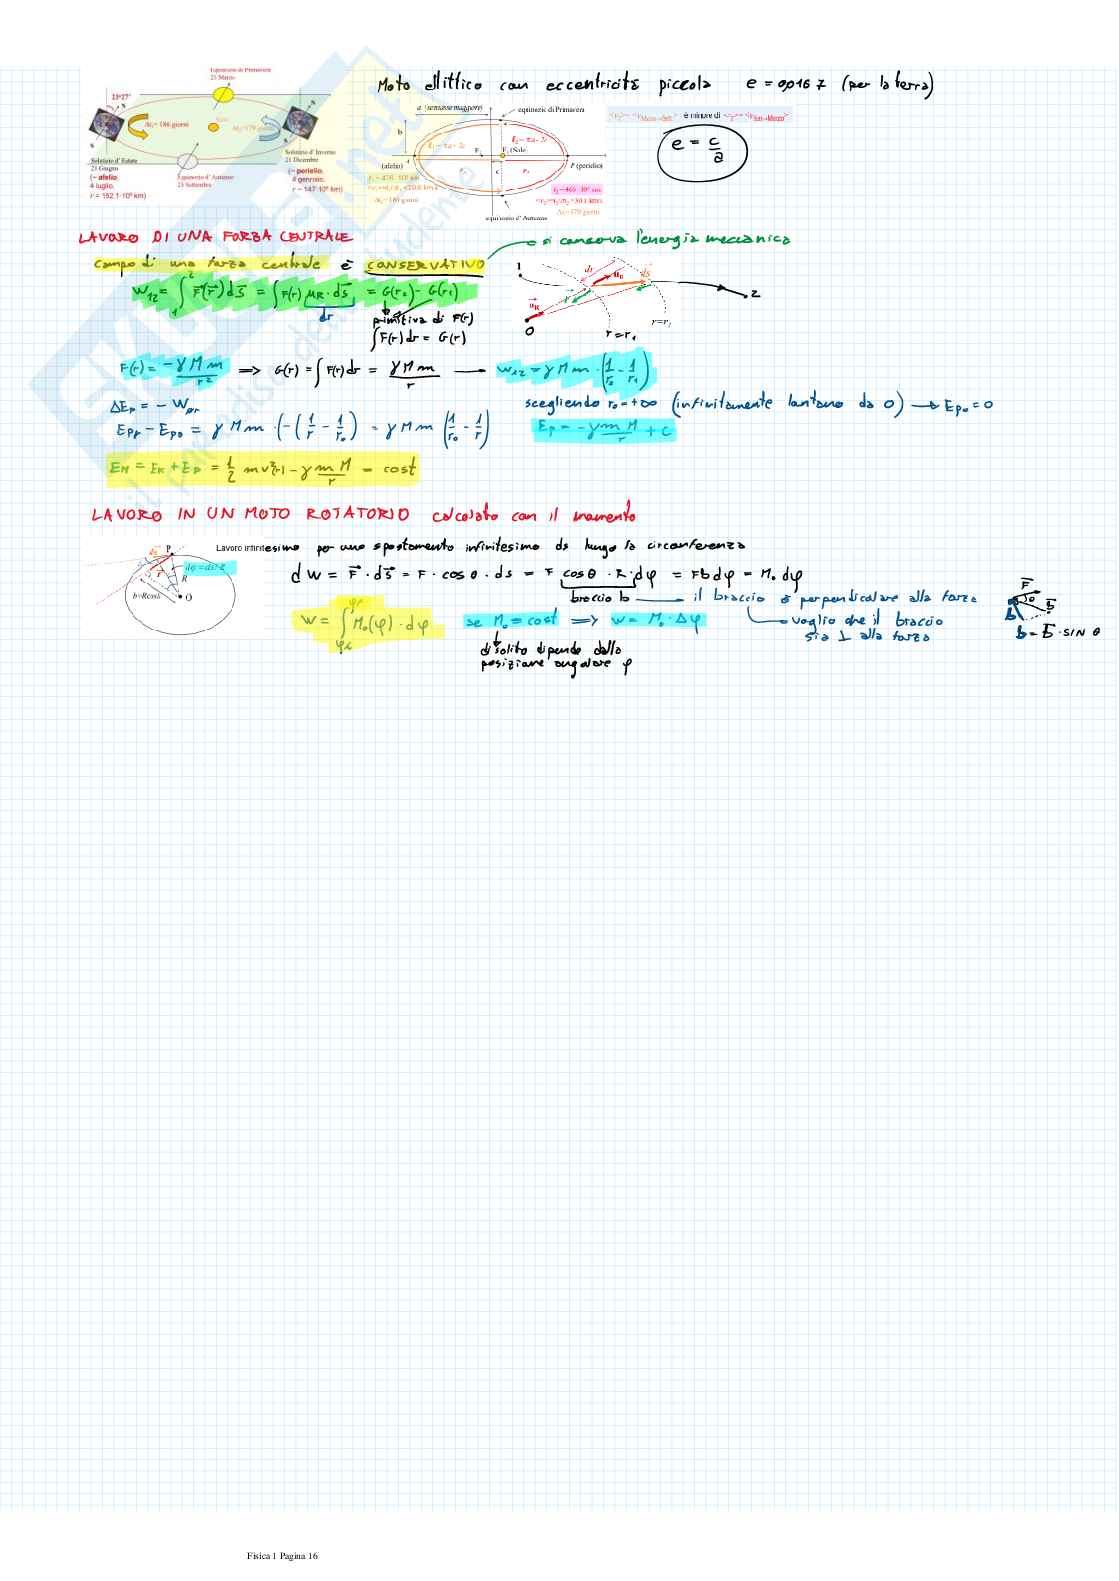 Equinozio di Primavera
21 Marzo
23°27'
N
S
Δt₁= 186 giorni
Sole
Δt₂=179 giorni
N
S
Solstizio d' Estate
21 Giugno
(~ afelio,
4 luglio,
r = 152.1·10⁶ km)
Equinozio d' Autunno
23 Settembre
Solstizio d' Inverno
21 Dicembre
(~ perielio,
4 gennaio,
r ~ 147·10⁶ km)
Moto ellittico con eccentricità piccola e = 0,0167 (per la terra)
a (semiasse maggiore)
equinozio di Primavera
b
F₂ (Sole)
A
(afelio)
P (perielio)
c
Δt₁=186 giorni
Δt=179 giorni
equinozio d' Autunno
è minore di
e = c/a
LAVORO DI UNA FORZA CENTRALE
si conserva l'energia meccanica
Campo di una forza centrale è CONSERVATIVO
W₁₂ = ∫₁² F⃗(r⃗) ds⃗ = ∫ F(r) μR · ds⃗ = G(r₂) - G(r₁)
dr
primitiva di F(r)
∫ F(r) dr = G(r)
1
2
O
r=r₁
F(r) = -γ M m / r² ⟹ G(r) = ∫ F(r) dr = γ M m / r — W₁₂ = γ M m · (1/r₂ - 1/r₁)
ΔEp = - W₀r
scegliendo r₀=+∞ (infinitamente lontano da O) → Ep₀ = 0
Epr - Ep₀ = γ M m · (-(1/r - 1/r₀)) = γ M m (1/r₀ - 1/r)
Ep = -γ m M / r + C
EM = Ek + Ep = 1/2 m v²(r) - γ m M / r = cost
LAVORO IN UN MOTO ROTATORIO calcolato con il momento
Lavoro infinitesimo per uno spostamento infinitesimo ds lungo la circonferenza
P
R
O
dφ=ds/R
b=Rcosθ
dW = F⃗ · ds⃗ = F · cosθ · ds = F cosθ · R · dφ = Fb dφ = M₀ dφ
braccio b — il braccio è perpendicolare alla forza
voglio che il braccio
sia ⊥ alla forza
F⃗
θ
b
b = b⃗ · SIN θ
W = ∫ M₀(φ) · dφ
se M₀ = cost ⟹ W = M₀ · Δφ
di solito dipende dalla
posizione angolare φ
Fisica 1 Pagina 16